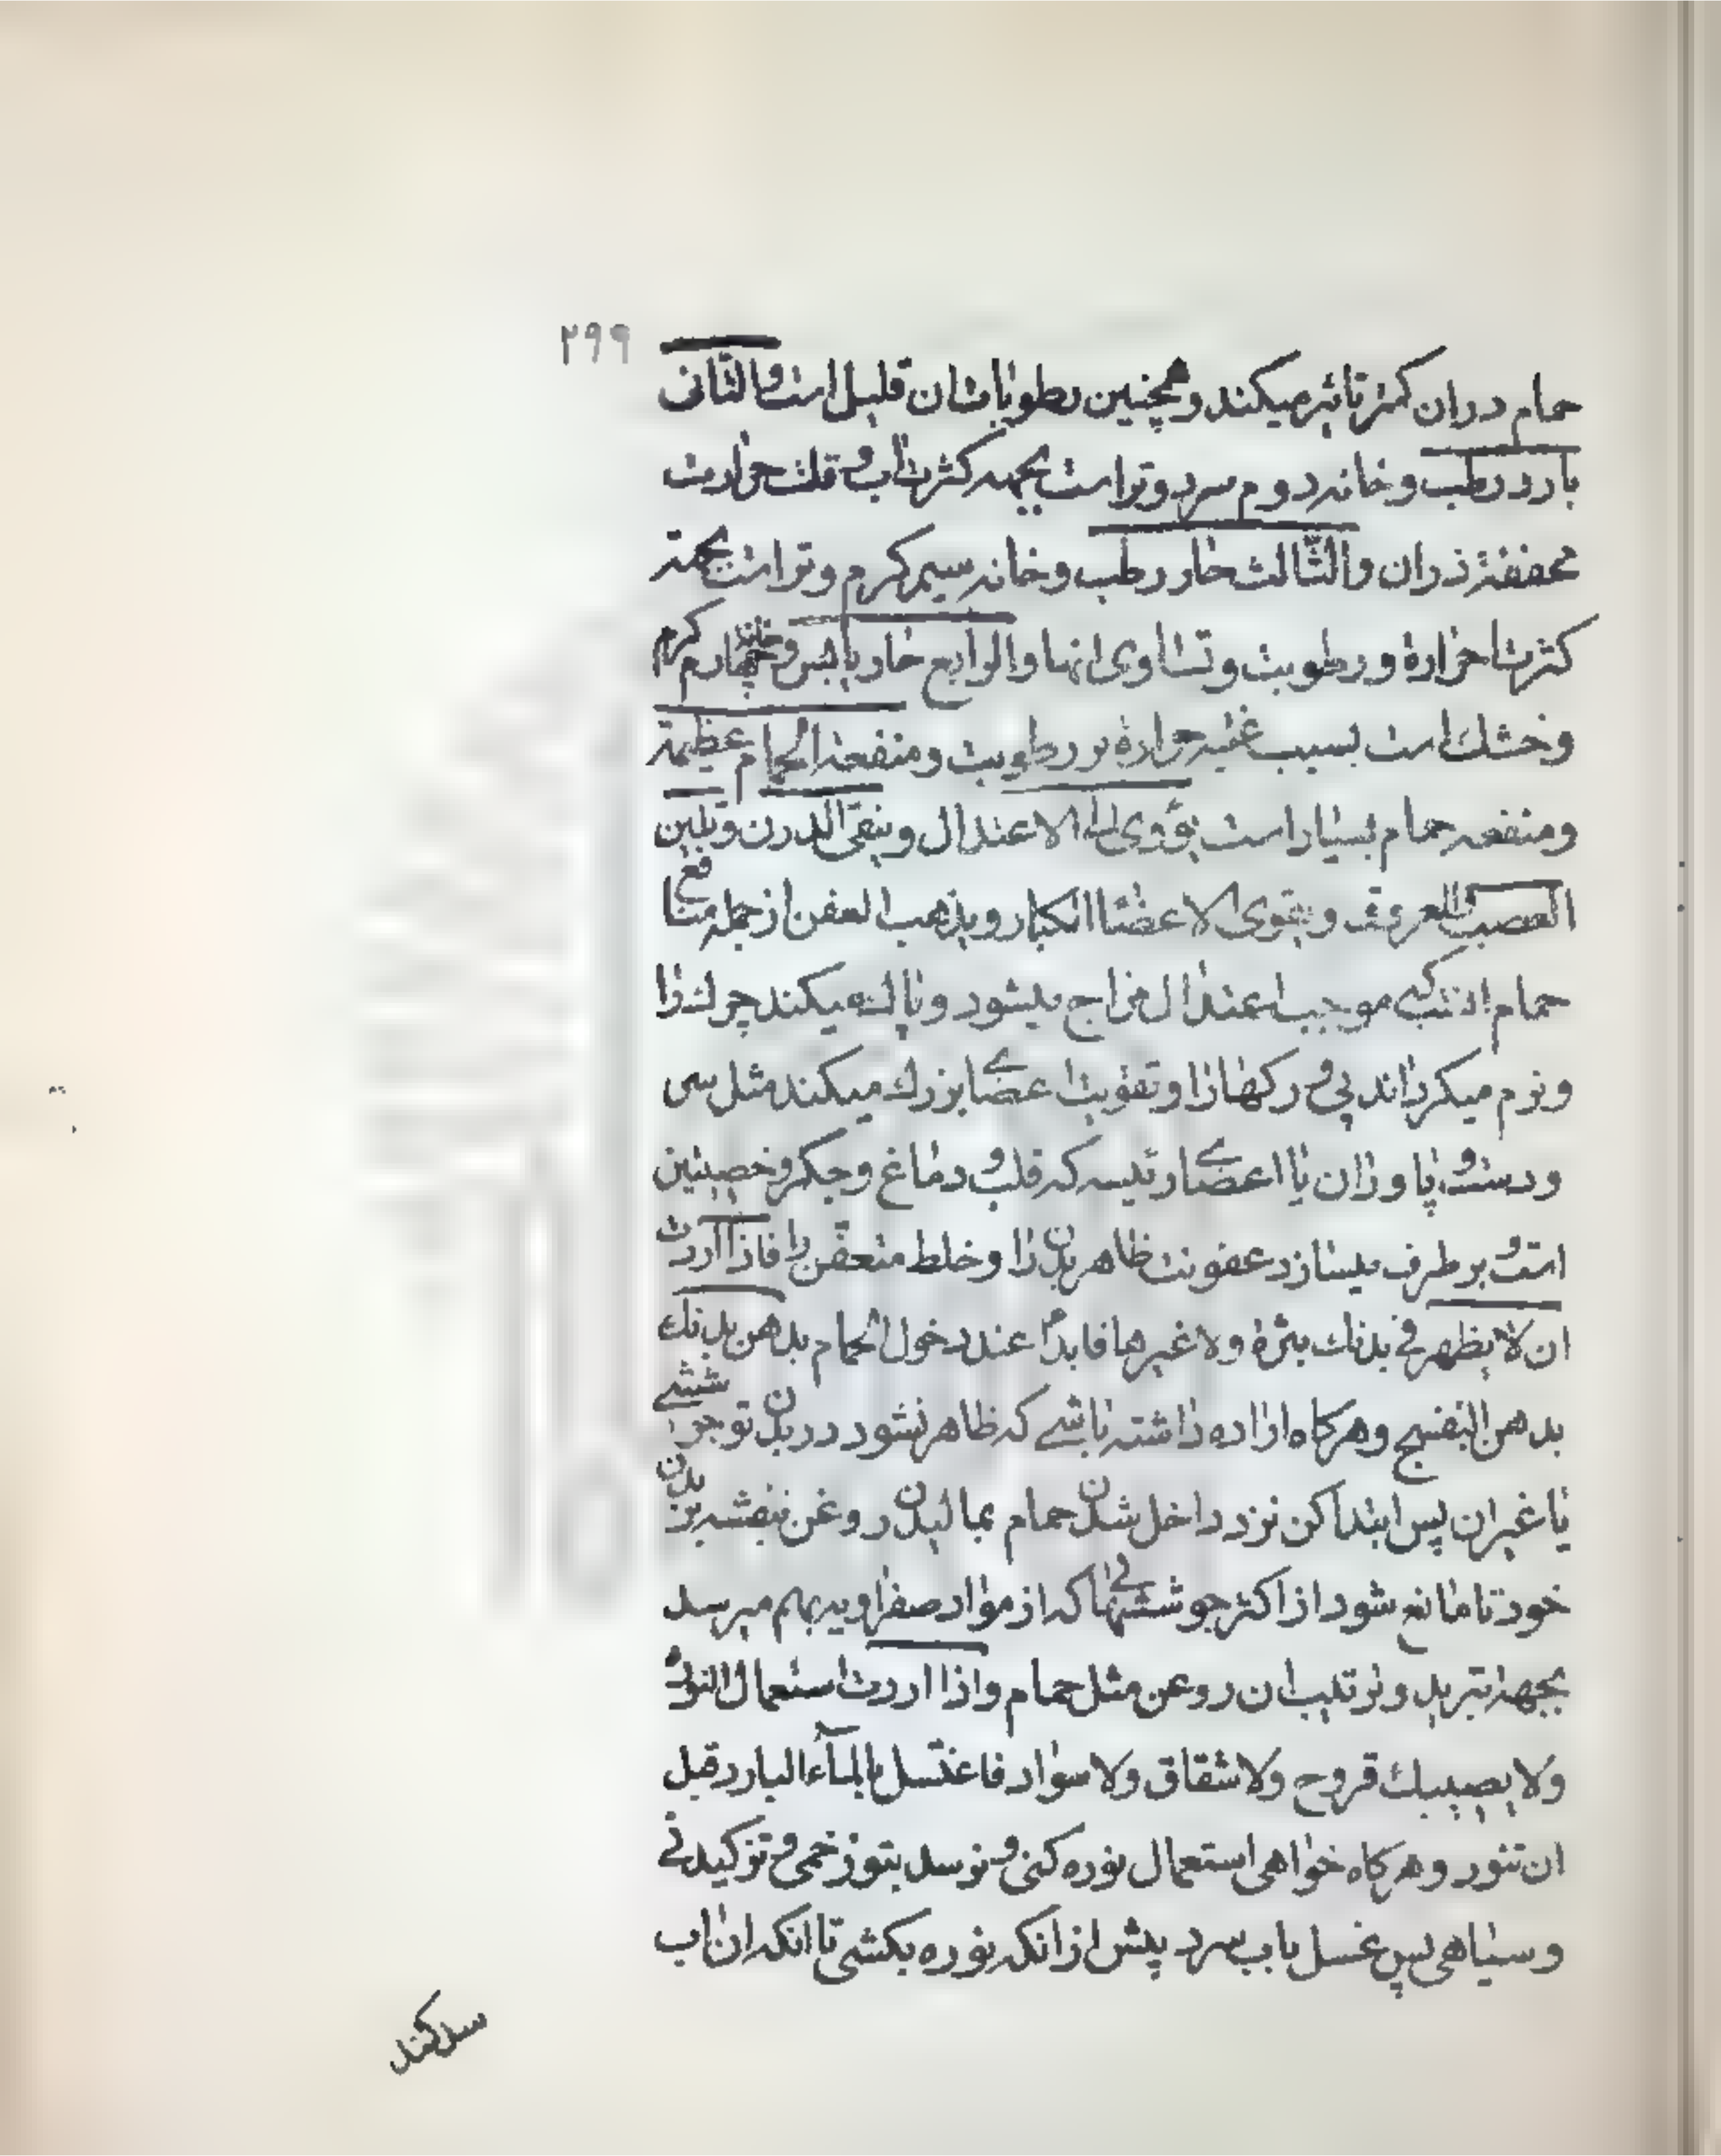 ۲۹۹
حمام دران کمتر تاثیر میکند و همچنین رطوبات ان قلیل است والثانی
بارد رطب و خانه دوم سرد و تر است بجهه کثرت اب و قلت حرارت
محففة دران والثّالث حار رطب و خانه سیم کرم و تر است بجهة
کثرت حرارة و رطوبت و تساوی انها والرابع حار یابس و خانه چهارم کرم
و خشك است بسبب غلبه حرارة بر رطوبت و منفعة الحمام عظیمة
و منفعه حمام بسیار است یؤدی الی الاعتدال و ینقی الدرن و یلین
العصب والعروق و یقوی الاعضاا الکبار و یذهب العفن از جمله منافع
حمام انست که موجب اعتدال مزاج میشود و پاك میکند چرك را
و نرم میکرداند پی و رکها را و تقویت اعضای بزرك میکند مثل سی
و دست و پا و ران یا اعضای رئیسه که قلب و دماغ و جکر و خصیتین
است و بر طرف میسازد عفونت ظاهر بدن را و خلط متعفن را فاذا اردت
ان لا یظهر فی بدنك بثرة ولا غیرها فابدأ عند دخول الحمام بدهن بدنك
بدهن البنفسج و هرکاه اراده داشته باشی که ظاهر نشود در بدن تو جوششی
یا غیر ان پس ابتدا کن نزد داخل شدن حمام بمالیدن روغن بنفشه بر بدن
خود تا مانع شود از اکثر جوششهائی که از مواد صفراویه بهم میرسد
بجهة تبرید و ترتیب ان روغن مثل حمام و اذا اردت استعمال النورة
ولا یصیبك قروح ولا شقاق ولا سواد فاغتسل بالمآء البارد قبل
ان تنور و هرکاه خواهی استعمال نوره کنی و نرسد بتو زخمی و ترکیدنی
و سیاهی پس غسل باب سرد پیش از انکه نوره بکشی تا انکه ان اب
سد کند